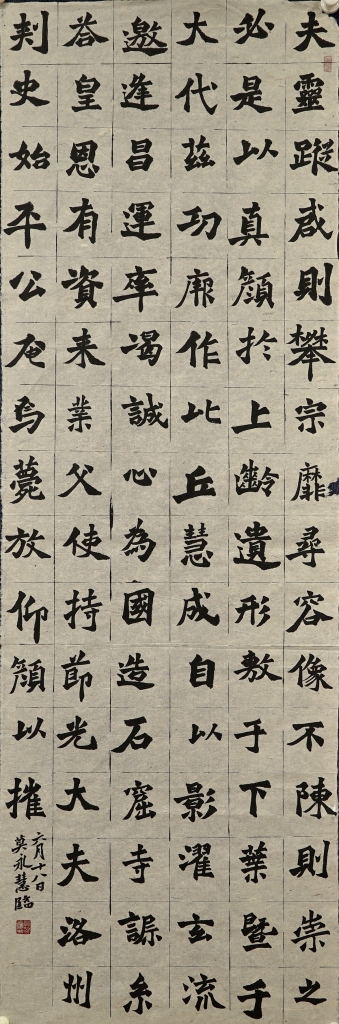 夫靈蹤咸則攀宗靡尋容像不陳則崇之
必是以真顔於上齡遺形敷于下葉暨于
大代茲功厥作比丘慧成自以影濯玄流
邀逢昌運率竭誠心為國造石窟寺
答皇恩有資来業父使持節光大夫洛州
刾史始平公奄焉薨放仰顔以摧
六月十八日
莫永慧臨